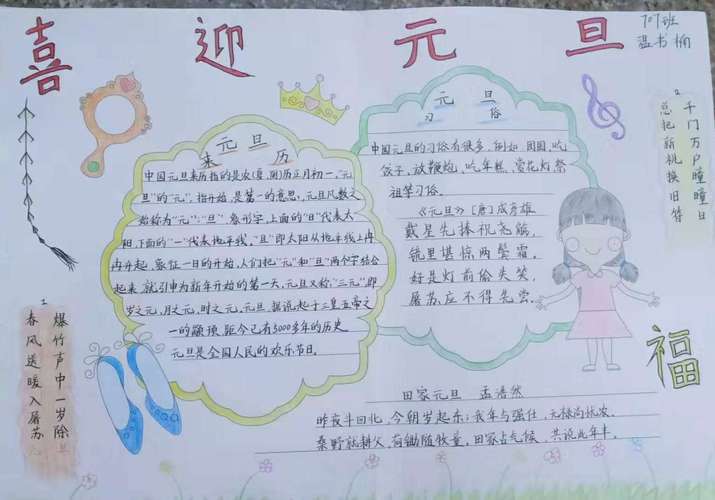 喜迎元旦
707班
温书
元旦
来历
中国元旦来历指的是农(夏,阴)历正月初一,"元
旦"的"元",指开始,是第一的意思,元旦凡数之
始称为"元";"旦",象形字,上面的"日"代表太
阳,下面的"一"代表地平线,"旦"即太阳从地平线上冉
冉升起,象征一日的开始,人们把"元"和"旦"两个字结合
起来,就引申为新年开始的第一天,元旦又称:"三元"即
岁之元,月之元,时之元,元旦,据说起于三皇五帝之
一的颛顼,距今已有3000多年的历史.
元旦是全国人民的欢乐节日.
元旦
习俗
中国元旦的习俗有很多,例如,团圆,吃
饺子,放鞭炮,吃年糕,赏花灯祭
祖等习俗.
《元旦》[唐]成彦雄
戴星先捧祝尧觞,
镜里堪惊两鬓霜,
好是灯前偷失笑,
屠苏应不得先尝.
2
千门万户曈曈日
总把新桃换旧符
1
爆竹声中一岁除
春风送暖入屠苏
福
田家元旦 孟浩然
昨夜斗回北,今朝岁起东;我年与强仕,无禄尚忧农.
桑野就耕父,荷锄随牧童,田家占气候,共说此年丰.